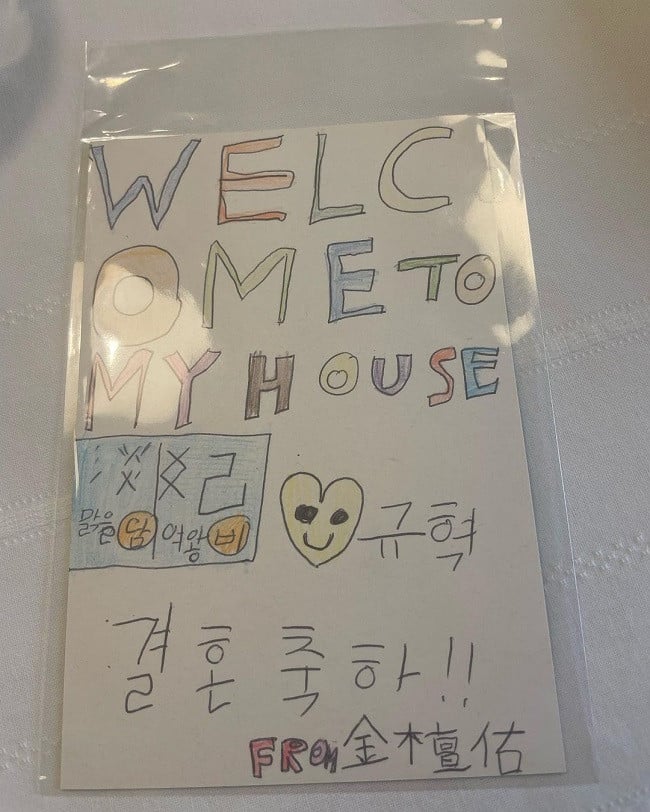 WELC
OME TO
MY HOUSE
淡 妃
맑을 담 여왕 비
규혁
결혼축하!!
FROM 金檀佑